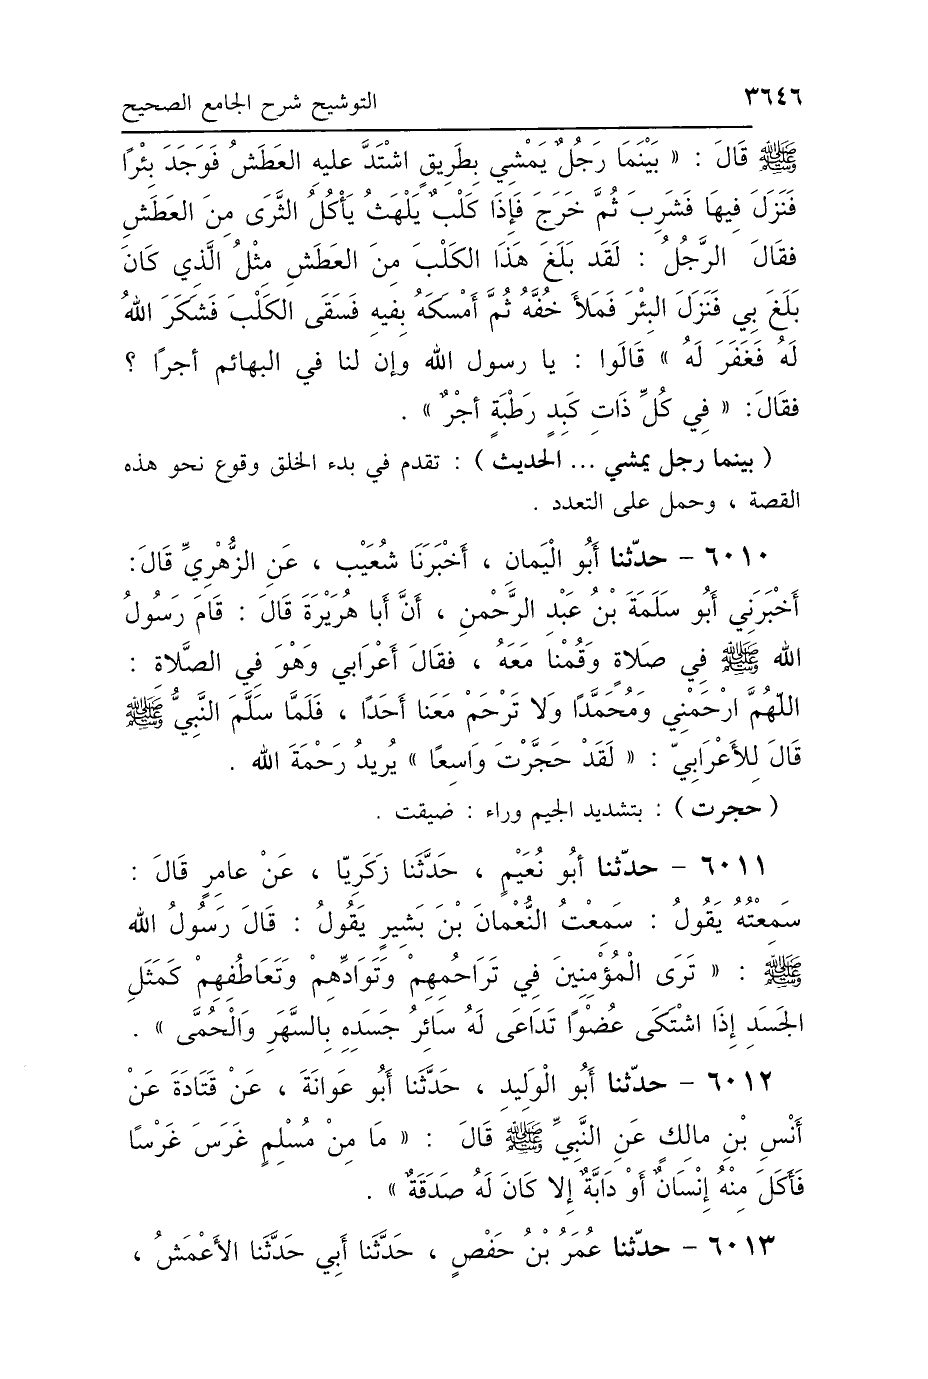 ٣٦٤٦ التوشيح شرح الجامع الصحيح
ﷺ قَالَ : « بَيْنَمَا رَجُلٌ يَمْشِي بِطَرِيقٍ اشْتَدَّ عليهِ العَطَشُ فَوَجَدَ بِئْرًا
فَنَزَلَ فِيهَا فَشَرِبَ ثُمَّ خَرَجَ فَإِذَا كَلْبٌ يَلْهَثُ يَأْكُلُ الثَّرَى مِنَ العَطَشِ
فقَالَ الرَّجُلُ : لَقَد بَلَغَ هَذَا الكَلْبَ مِنَ العَطَشِ مِثْلُ الَّذِي كَانَ
بَلَغَ بِي فَنَزَلَ البِئْرَ فَملَأَ خُفَّهُ ثُمَّ أَمْسَكَهُ بِفيهِ فَسَقَى الكَلْبَ فَشَكَرَ اللهُ
لَهُ فَغَفَرَ لَهُ » قَالُوا : يا رسول الله وإن لنا في البهائم أجرًا ؟
فقَالَ: « فِي كُلِّ ذَاتِ كَبِدٍ رَطْبَةٍ أجْرٌ » .
( بينما رجل يمشي ... الحديث ) : تقدم في بدء الخلق وقوع نحو هذه
القصة ، وحمل على التعدد .
٦٠١٠ - حدّثنا أَبُو الْيَمانِ ، أَخْبَرَنَا شُعَيْبٌ ، عَنِ الزُّهْرِيِّ قَالَ:
أَخْبَرَنِي أَبُو سَلَمَةَ بْنُ عَبْدِ الرَّحْمنِ ، أَنَّ أَبا هُرَيْرَةَ قَالَ : قَامَ رَسُولُ
الله ﷺ فِي صَلاةٍ وَقُمْنا مَعَهُ ، فقَالَ أَعْرَابي وَهْوَ فِي الصَّلاةِ :
اللّهُمَّ ارْحَمْنِي وَمُحَمَّدًا وَلا تَرْحَمْ مَعَنا أَحَدًا ، فَلَمَّا سَلَّمَ النَّبِيُّ ﷺ
قَالَ لِلأَعْرَابِيّ : « لَقَدْ حَجَّرْتَ وَاسعًا » يُرِيدُ رَحْمَةَ الله .
( حجرت ) : بتشديد الجيم وراء : ضيقت .
٦٠١١ - حدّثنا أبُو نُعَيْمٍ ، حَدَّثَنا زَكَرِيّا ، عَنْ عامرٍ قَالَ :
سَمِعْتُهُ يَقُولُ : سَمِعْتُ النُّعْمانَ بْنَ بَشِيرٍ يَقُولُ : قَالَ رَسُولُ الله
ﷺ : « تَرَى الْمُؤْمِنِينَ فِي تَرَاحُمِهِمْ وَتَوَادِّهِمْ وَتَعَاطُفِهِمْ كَمَثَلِ
الجَسَدِ إِذَا اشْتَكَى عُضْوًا تَدَاعَى لَهُ سَائِرُ جَسَدِهِ بِالسَّهَرِ وَالْحُمَّى » .
٦٠١٢ - حدّثنا أَبُو الْوَلِيدِ ، حَدَّثَنا أَبُو عَوانَةَ ، عَنْ قَتَادَةَ عَنْ
أَنْسِ بْنِ مالِكٍ عَنِ النَّبِيِّ ﷺ قَالَ : « مَا مِنْ مُسْلِمٍ غَرَسَ غَرْسًا
فَأَكَلَ مِنْهُ إِنْسَانٌ أَوْ دَابَّةٌ إلا كَانَ لَهُ صَدَقَةٌ » .
٦٠١٣ - حدّثنا عُمَرُ بْنُ حَفْصٍ ، حَدَّثَنا أَبِي حَدَّثَنا الأَعْمَشُ ،